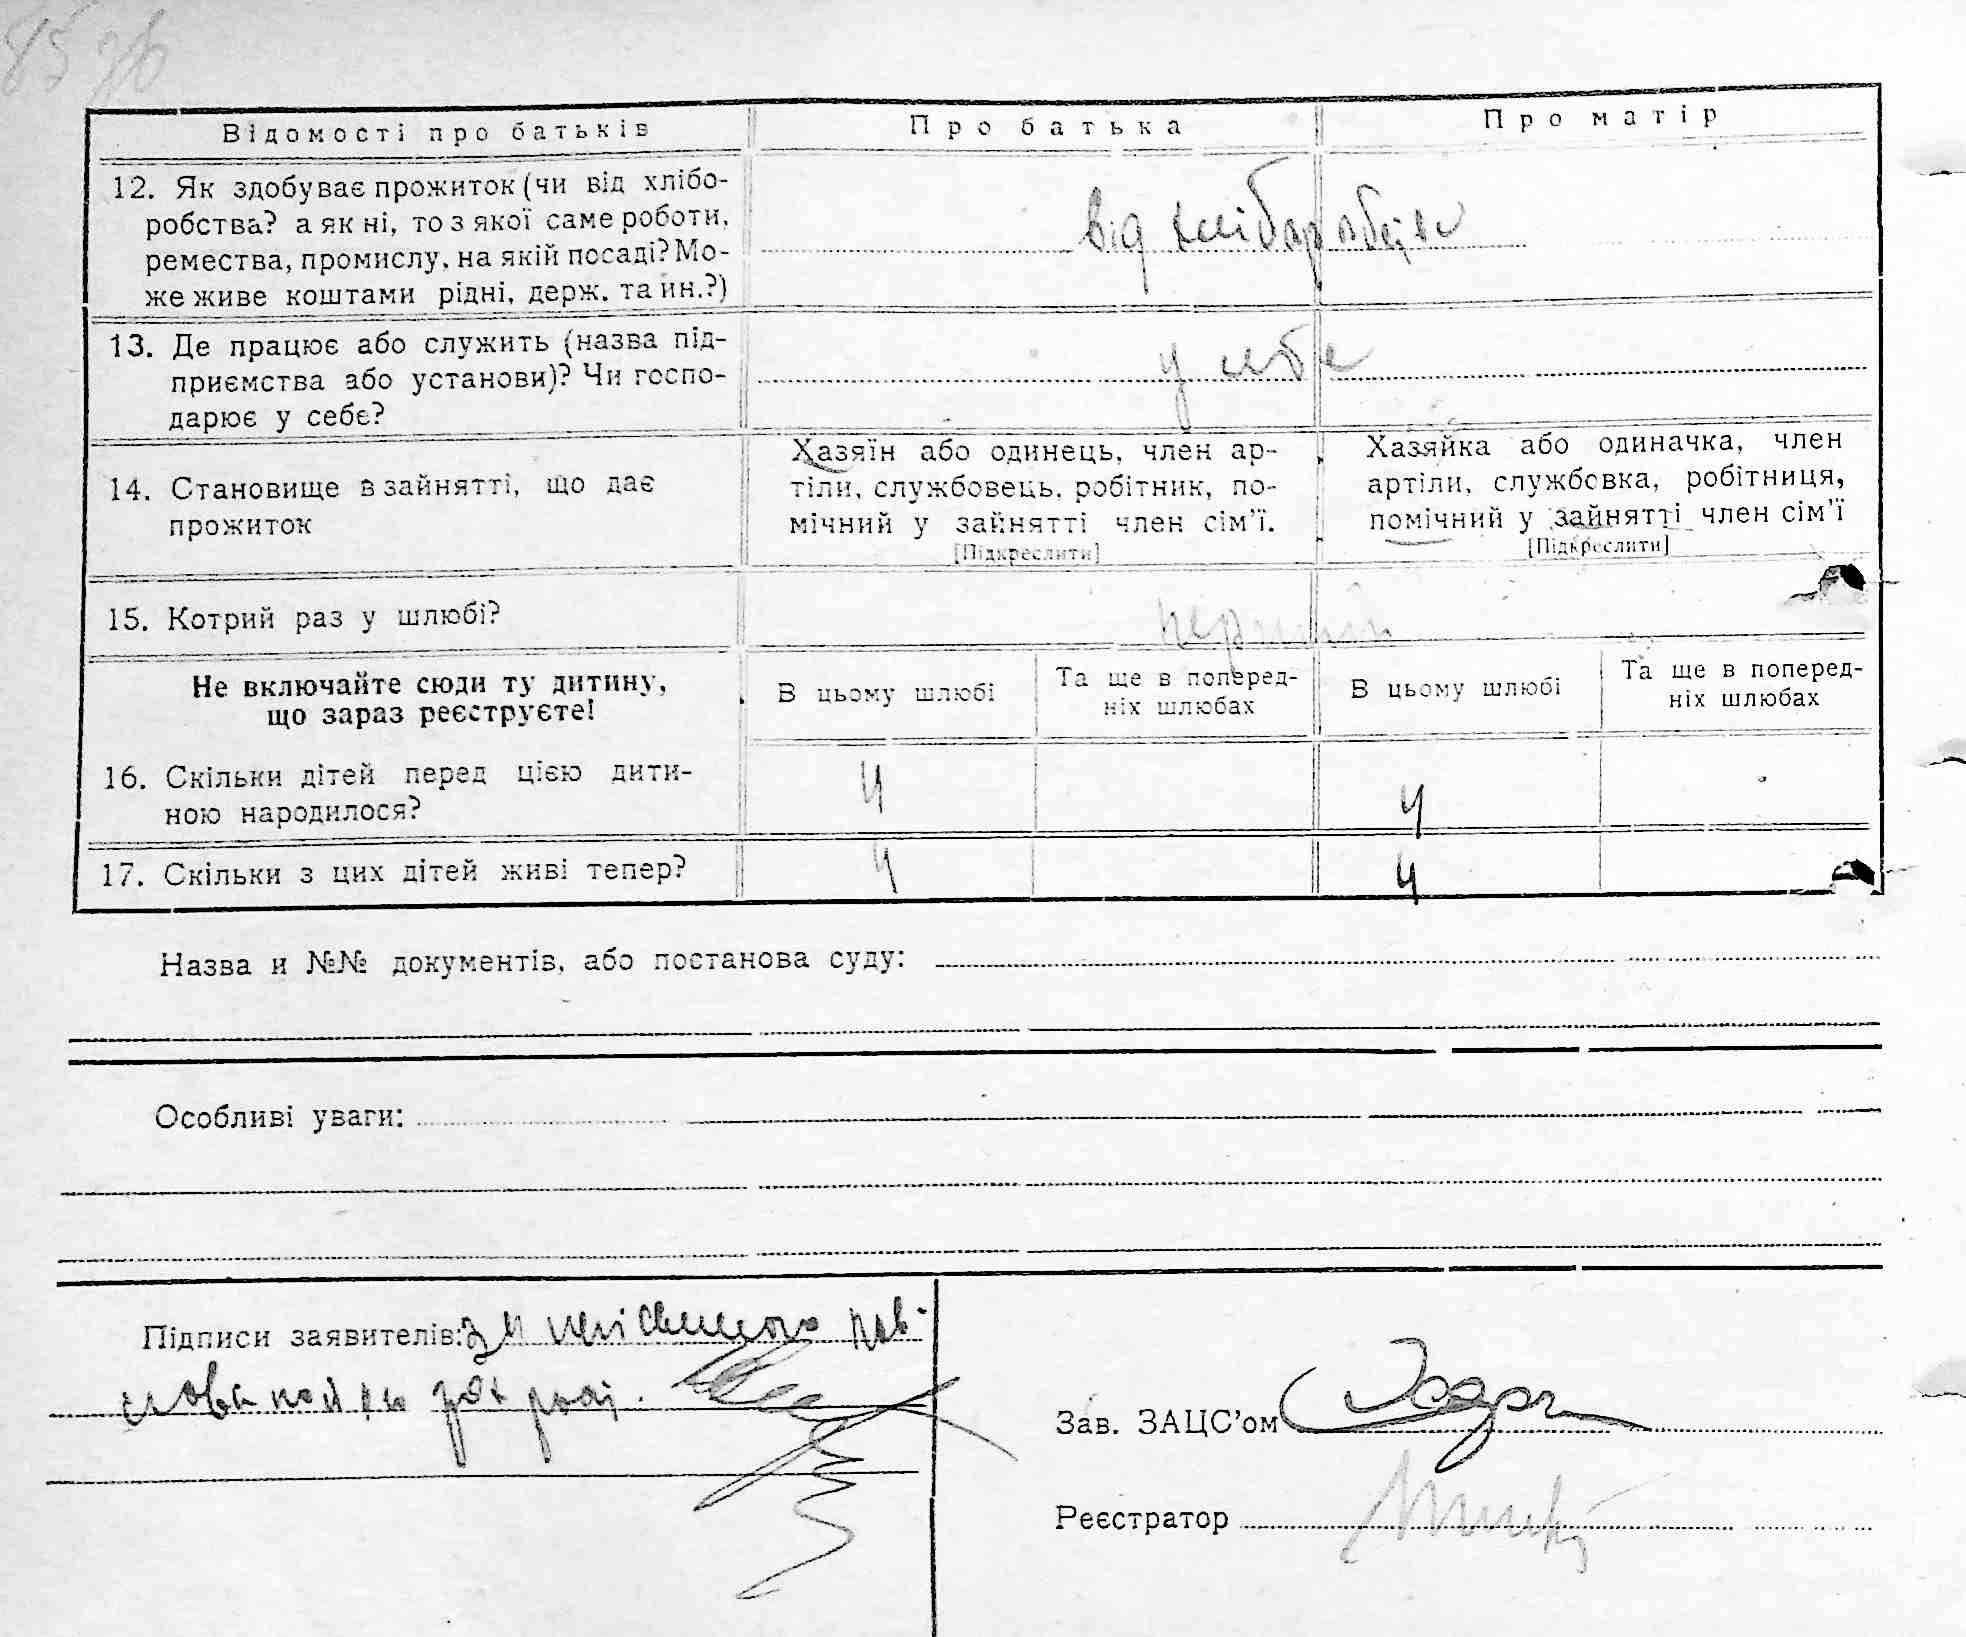 85 зв
Відомості про батьків
Про батька
Про матір
12. Як здобуває прожиток (чи від хлібо-
робства? а як ні, то з якої саме роботи,
ремества, промислу, на якій посаді? Мо-
же живе коштами рідні, держ. та ин.?)
від
13. Де працює або служить (назва під-
приємства або установи)? Чи госпо-
дарює у себе?
у себе
14. Становище в зайнятті, що дає
прожиток
Хазяїн або одинець, член ар-
тіли, службовець, робітник, по-
мічний у зайнятті член сім'ї.
[Підкреслити]
Хазяйка або одиначка, член
артіли, службовка, робітниця,
помічний у зайнятті член сім'ї
[Підкреслити]
15. Котрий раз у шлюбі?
перший
Не включайте сюди ту дитину,
що зараз реєструєте!
В цьому шлюбі
Та ще в поперед-
ніх шлюбах
В цьому шлюбі
Та ще в поперед-
ніх шлюбах
16. Скільки дітей перед цією дити-
ною народилося?
4
4
17. Скільки з цих дітей живі тепер?
4
4
Назва и №№ документів, або постанова суду:
Особливі уваги:
Підписи заявителів:
Зав. ЗАЦС'ом
Реєстратор